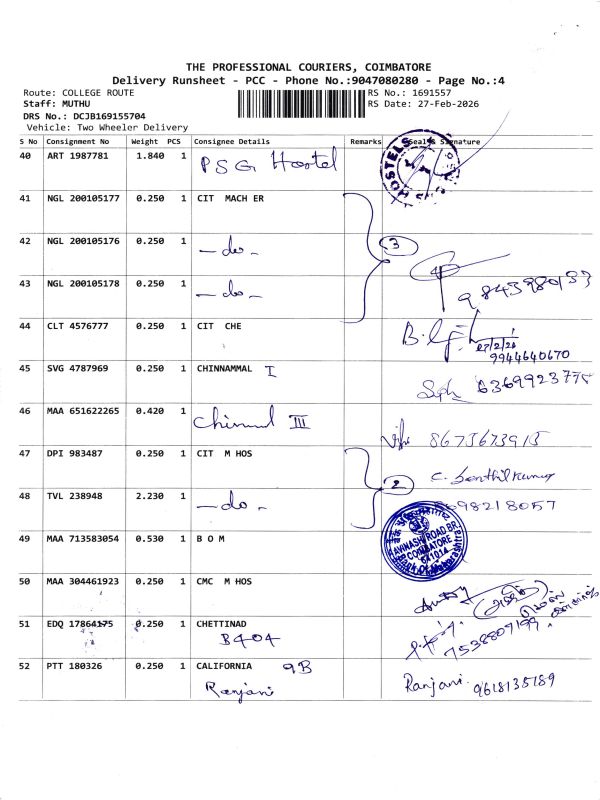 THE PROFESSIONAL COURIERS, COIMBATORE
Delivery Runsheet - PCC - Phone No.:9047080280 - Page No.:4
Route: COLLEGE ROUTE RS No.: 1691557
Staff: MUTHU RS Date: 27-Feb-2026
DRS No.: DCJB169155704
Vehicle: Two Wheeler Delivery
S No Consignment No Weight PCS Consignee Details Remarks Seal & Signature
40 ART 1987781 1.840 1 PSG Hostel HOSTELS
41 NGL 200105177 0.250 1 CIT MACH ER
42 NGL 200105176 0.250 1 -do- 3
43 NGL 200105178 0.250 1 -do- 9843980137
44 CLT 4576777 0.250 1 CIT CHE
27/2/26
9944640670
45 SVG 4787969 0.250 1 CHINNAMMAL I
46 MAA 651622265 0.420 1 III 8673673915
47 DPI 983487 0.250 1 CIT M HOS 2 C. Senthilkumar
48 TVL 238948 2.230 1 -do- 98218057
49 MAA 713583054 0.530 1 B O M AVINASHI ROAD BR. COIMBATORE 641014
50 MAA 304461923 0.250 1 CMC M HOS
51 EDQ 17864175 0.250 1 CHETTINAD
B404 7538807199
52 PTT 180326 0.250 1 CALIFORNIA 9B
Ranjani Ranjani. 9618135189